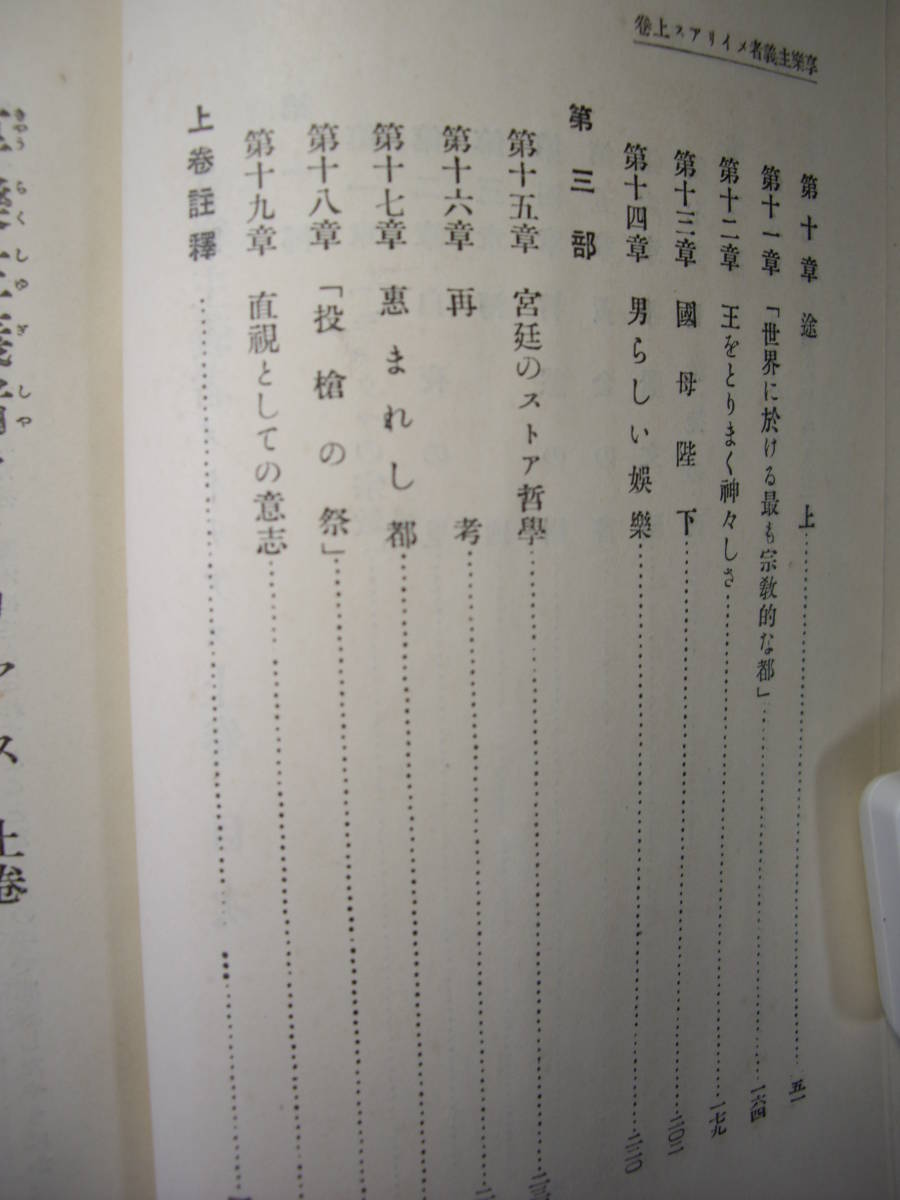 享樂主義者メイリアス上卷
第十章 途上……五一
第十一章 「世界に於ける最も宗敎的な都」……一六四
第十二章 王をとりまく神々しさ……一七九
第十三章 國母陛下……二〇二
第十四章 男らしい娛樂……二二〇
第三部
第十五章 宮廷のストア哲學……二三
第十六章 再考……二
第十七章 惠まれし都……
第十八章 「投槍の祭」……
第十九章 直視としての意志……
上卷註釋……
リアス 上卷
きやうらくしゆぎしや